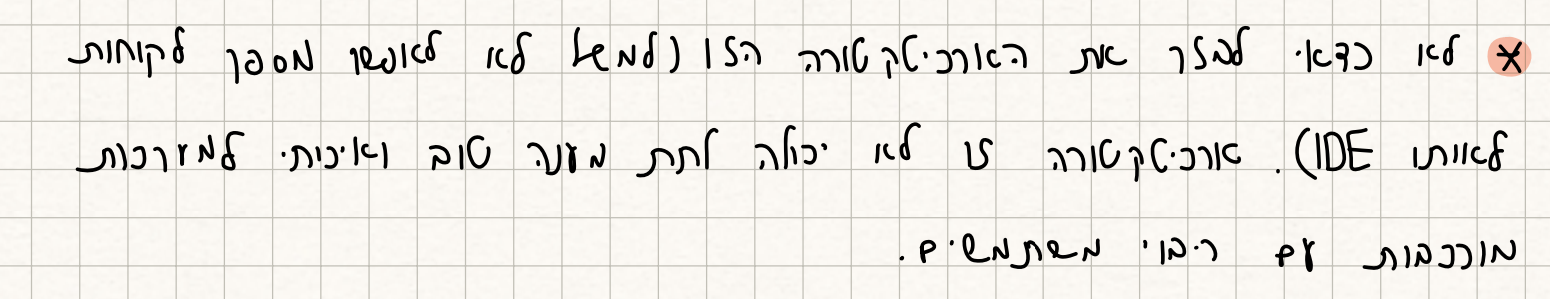 * לא כדאי לבזר את הארכיטקטורה הזו (למשל לא לאפשר מספר לקוחות
לאותו IDE). ארכיטקטורה זו לא יכולה לתת מענה טוב ואיכותי למערכות
מורכבות עם ריבוי משתמשים.